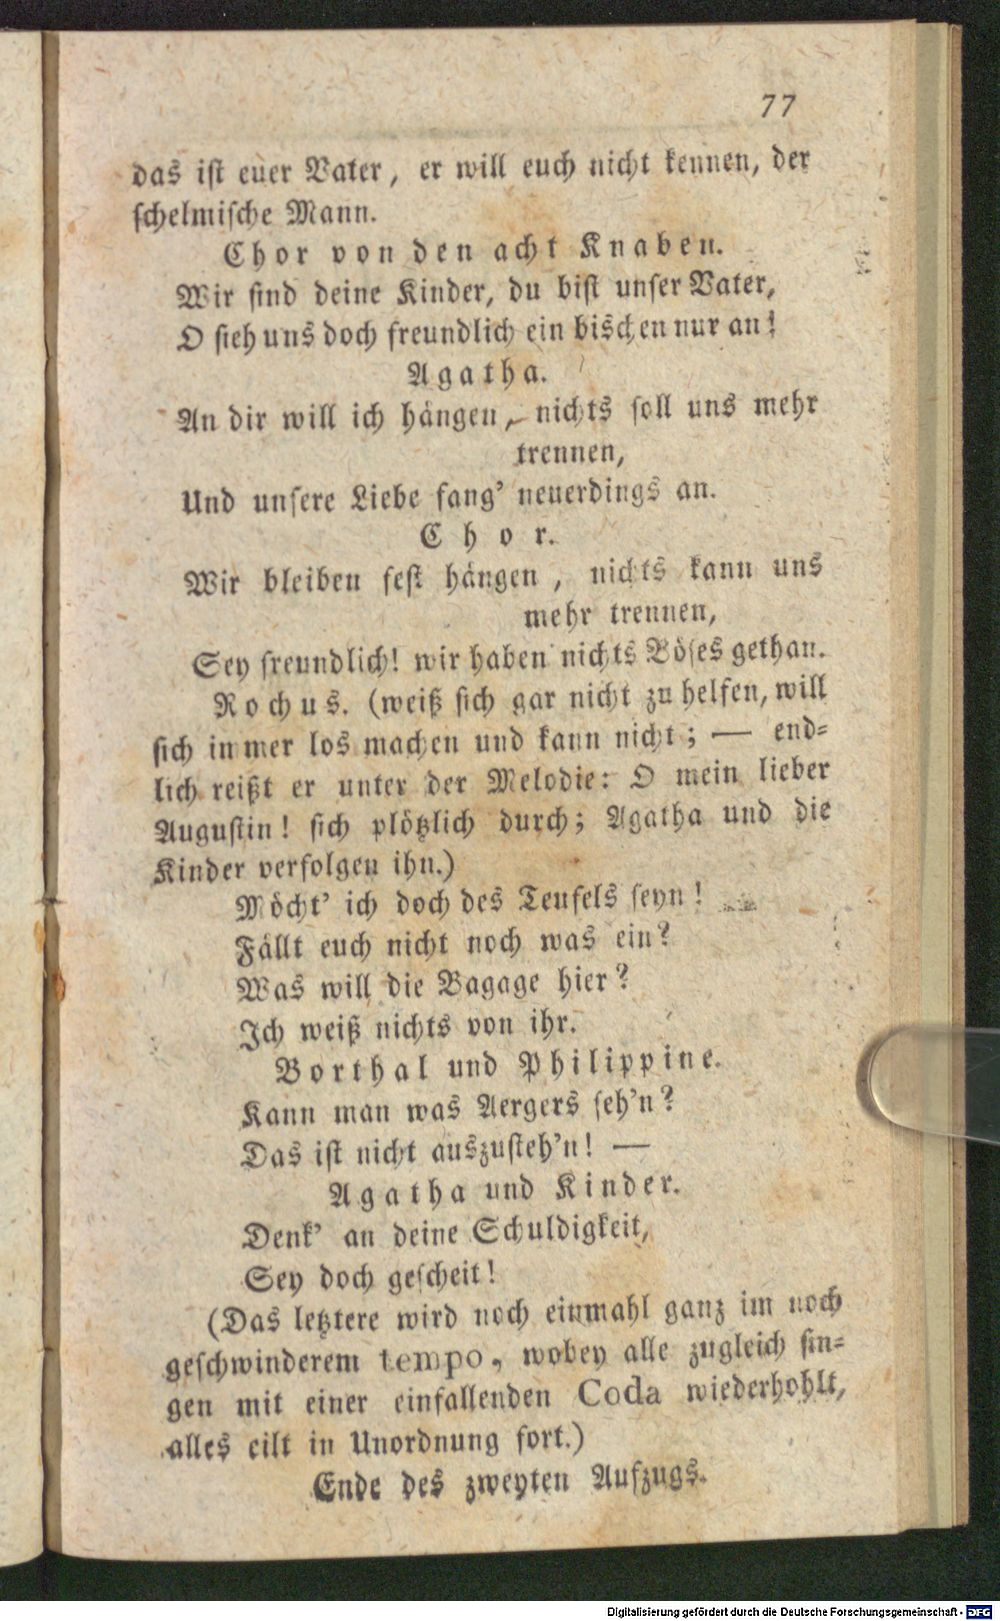 77
das ist euer Vater, er will euch nicht kennen, der
schelmische Mann.
Chor von den acht Knaben.
Wir sind deine Kinder, du bist unser Vater,
O sieh uns doch freundlich ein bischen nur an!
Agatha.
An dir will ich hängen, nichts soll uns mehr
trennen,
Und unsere Liebe fang' neuerdings an.
Chor.
Wir bleiben fest hängen, nichts kann uns
mehr trennen,
Sey freundlich! wir haben nichts Böses gethan.
Rochus. (weiß sich gar nicht zu helfen, will
sich immer los machen und kann nicht; — end-
lich reißt er unter der Melodie: O mein lieber
Augustin! sich plötzlich durch; Agatha und die
Kinder verfolgen ihn.)
Möcht' ich doch des Teufels seyn!
Fällt euch nicht noch was ein?
Was will die Bagage hier?
Ich weiß nichts von ihr.
Borthal und Philippine.
Kann man was Aergers seh'n?
Das ist nicht auszusteh'n! —
Agatha und Kinder.
Denk' an deine Schuldigkeit,
Sey doch gescheit!
(Das letztere wird noch einmahl ganz im noch
geschwinderem tempo, wobey alle zugleich sin-
gen mit einer einfallenden Coda wiederhohlt,
alles eilt in Unordnung fort.)
Ende des zweyten Aufzugs.
Digitalisierung gefördert durch die Deutsche Forschungsgemeinschaft - DFG